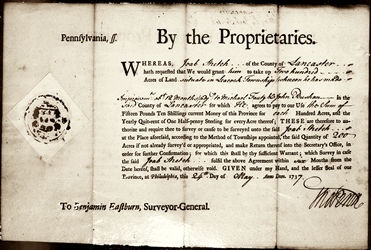 Pennsylvania, ss.
By the Proprietaries.
WHEREAS, of the County of Lancaster
hath requested that We would grant him to take up Two hundred
Acres of Land situate in Township
12 Month(s)
said County of Lancaster for which He agrees to pay to our Use the Sum of
Fifteen Pounds Ten Shillings current Money of this Province for each Hundred Acres, and the
Yearly Quit-rent of One Half-penny Sterling for every Acre thereof; THESE are therefore to au-
thorize and require thee to survey or cause to be surveyed unto the said
at the Place aforesaid, according to the Method of Townships appointed, the said Quantity of 200
Acres if not already survey'd or appropriated, and make Return thereof into the Secretary's Office, in
order for further Confirmation; for which this shall be thy sufficient Warrant; which Survey in case
the said fulfil the above Agreement within six Months from the
Date hereof, shall be valid, otherwise void. GIVEN under my Hand, and the lesser Seal of our
Province, at Philadelphia, this 24th Day of May Anno Dom. 1737
To Benjamin Eastburn, Surveyor-General.